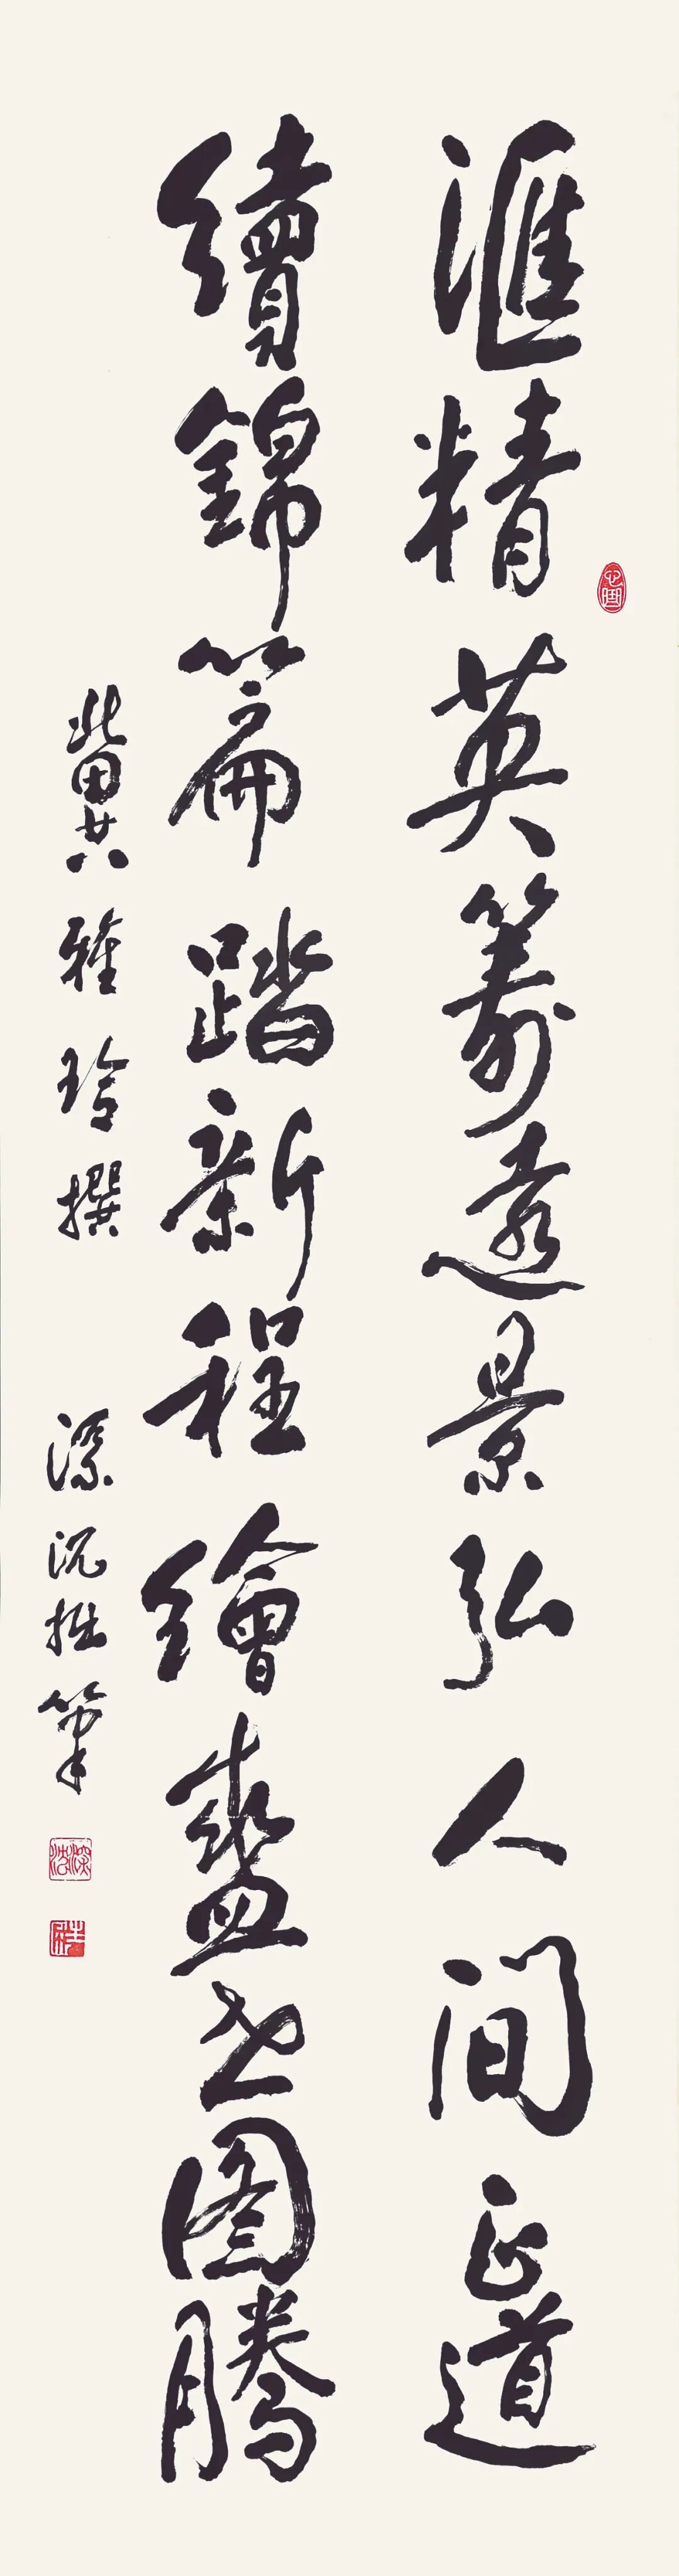 滙精英籌遠景弘人間正道
續錦篇踏新程繪盛世圖騰
雅玲撰 深沉拙筆